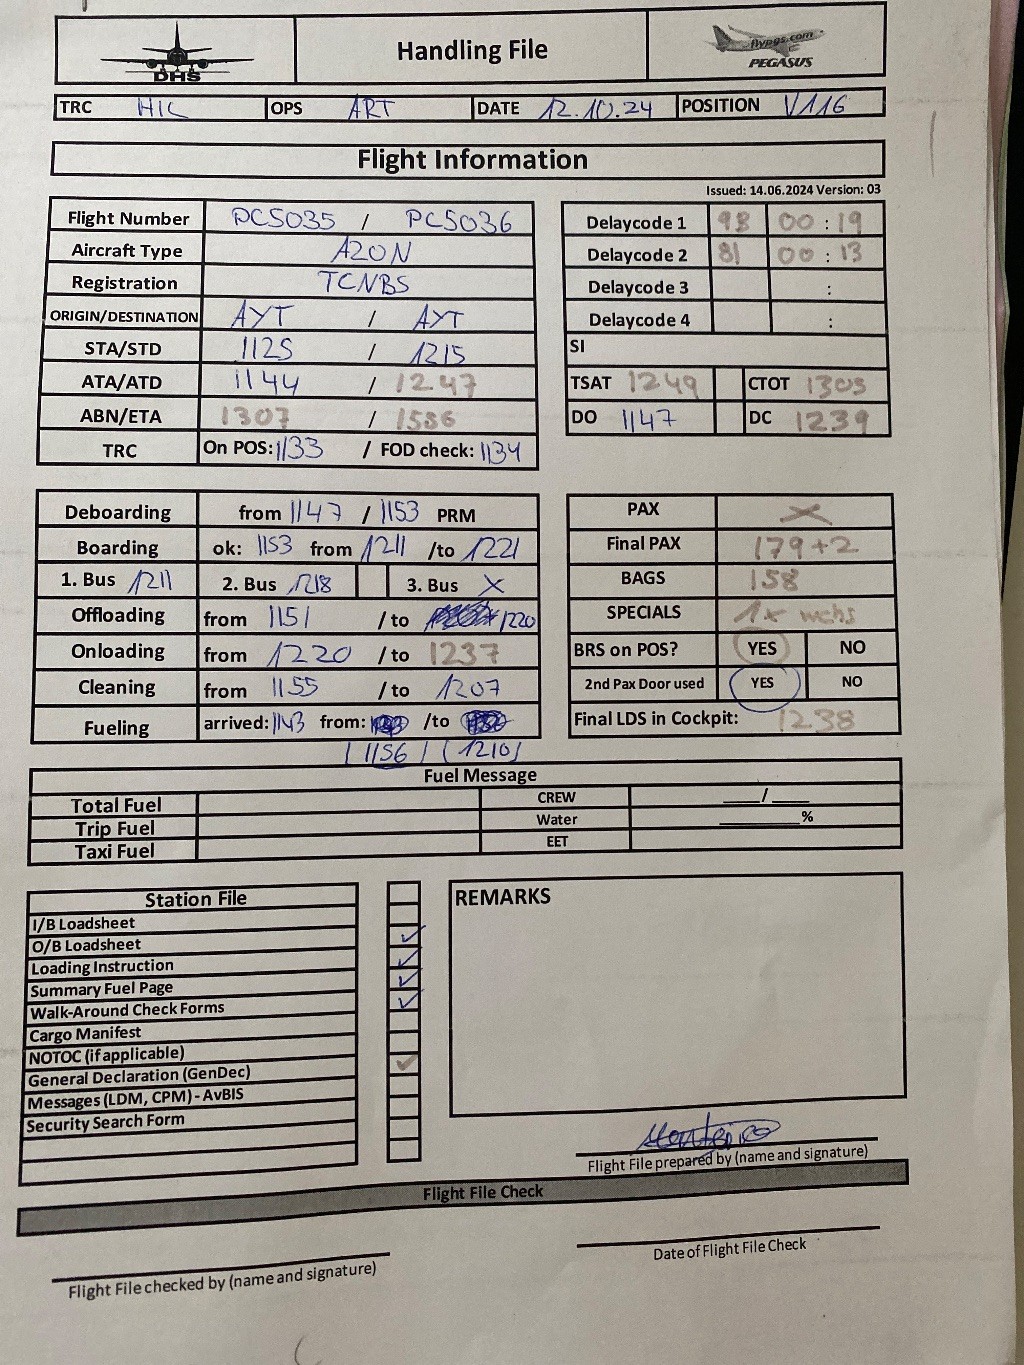 DHS
Handling File
flypgs.com
PEGASUS
TRC HIC OPS ART DATE 12.10.24 POSITION V116
Flight Information
Issued: 14.06.2024 Version: 03
Flight Number PC5035 / PC5036
Aircraft Type A20N
Registration TCNBS
ORIGIN/DESTINATION AYT / AYT
STA/STD 1125 / 1215
ATA/ATD 1144 / 1247
ABN/ETA 1307 /
TRC On POS: 1133 / FOD check: 1134
Delaycode 1 93 00 : 19
Delaycode 2 81 00 : 13
Delaycode 3 :
Delaycode 4 :
SI
TSAT 1249 CTOT 1305
DO 1147 DC 1239
Deboarding from 1147 / 1153 PRM
Boarding ok: 1153 from 1211 /to 1221
1. Bus 1211 2. Bus 1218 3. Bus X
Offloading from 1151 /to 1220
Onloading from 1220 /to 1237
Cleaning from 1155 /to 1207
Fueling arrived: 1143 from: /to
1156 1210
PAX X
Final PAX 179+2
BAGS 158
SPECIALS 1x wchs
BRS on POS? YES NO
2nd Pax Door used YES NO
Final LDS in Cockpit: 1238
Fuel Message
Total Fuel CREW ____/____
Trip Fuel Water ________%
Taxi Fuel EET
Station File
I/B Loadsheet
O/B Loadsheet
Loading Instruction
Summary Fuel Page
Walk-Around Check Forms
Cargo Manifest
NOTOC (if applicable)
General Declaration (GenDec)
Messages (LDM, CPM) - AvBIS
Security Search Form
REMARKS
Monteiro
Flight File prepared by (name and signature)
Flight File Check
Flight File checked by (name and signature)
Date of Flight File Check